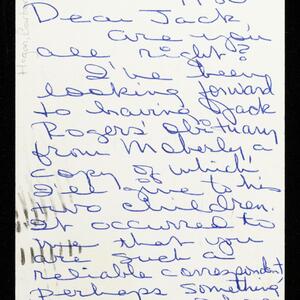 Dear Jack,
Are you
all right?
I've been
looking forward
to having Jack
Rogers' Obituary
from Moberly, a
copy of which
I'll give to his
two children.
It occurred to
me that you
are such a
reliable correspondent
perhaps something